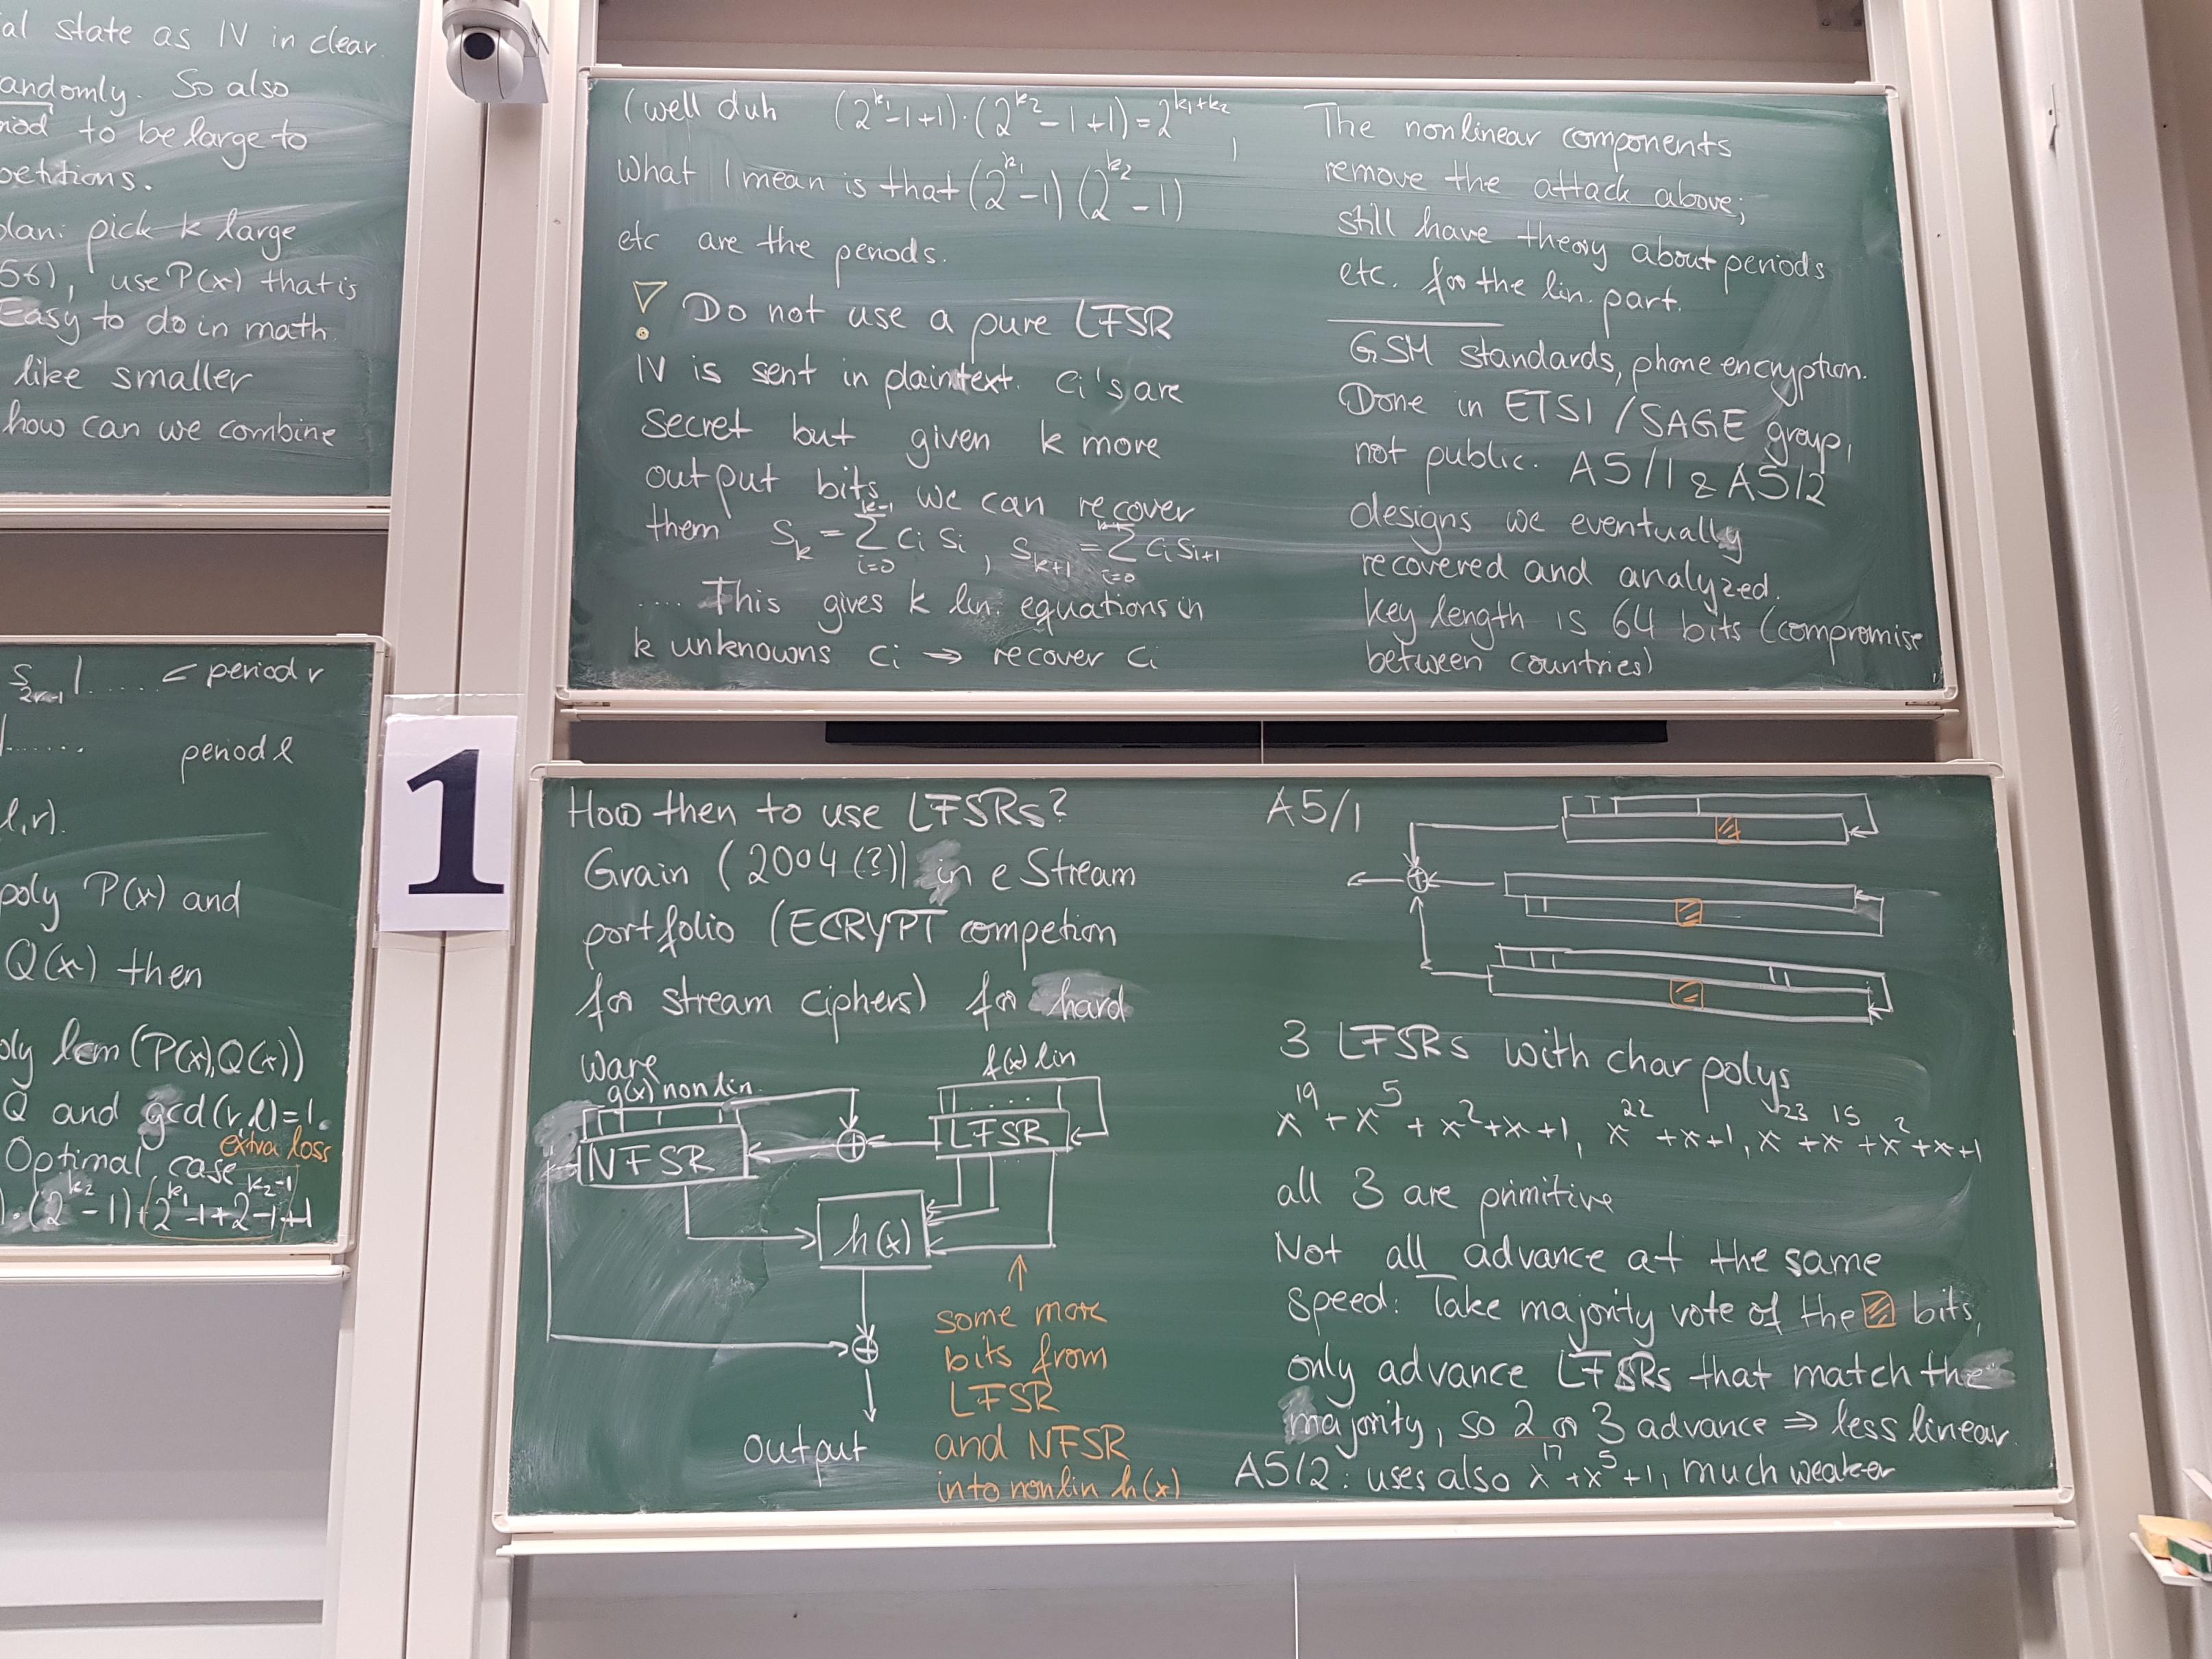 al state as IV in clear.
andomly. So also
riod to be large to
petitions.
plan: pick k large
56), use P(x) that is
Easy to do in math.
like smaller
how can we combine
S_{2r-1} | ..... ← period r
|...... period l
l,r).
poly P(x) and
Q(x) then
oly lcm(P(x),Q(x))
Q and gcd(r,l)=1.
Optimal case extra loss
)·(2^{k_2}-1)+2^{k_1}-1+2^{k_2}-1+1
1
(well duh (2^{k_1}-1+1)·(2^{k_2}-1+1)=2^{k_1+k_2},
What I mean is that (2^{k_1}-1)(2^{k_2}-1)
etc are the periods.
! Do not use a pure LFSR
IV is sent in plaintext. Ci's are
secret but given k more
output bits we can recover
them S_k = Σ_{i=0}^{k-1} C_i S_i, S_{k+1} = Σ_{i=0}^{k-1} C_i S_{i+1}
.... This gives k lin. equations in
k unknowns Ci → recover Ci
The nonlinear components
remove the attack above;
still have theory about periods
etc. for the lin. part.
GSM standards, phone encryption.
Done in ETSI / SAGE group,
not public. A5/1 & A5/2
designs we eventually
recovered and analyzed.
key length is 64 bits (compromise
between countries)
How then to use LFSRs?
Grain (2004(?)) in eStream
portfolio (ECRYPT competion
for stream ciphers) for hard
ware
g(x) nonlin.
f(x) lin
....
NFSR
⊕
LFSR
h(x)
⊕
output
↑
some more
bits from
LFSR
and NFSR
into nonlin h(x)
A5/1
⊕
3 LFSRs with char polys
x^19 + x^5 + x^2+x+1, x^22 +x+1, x^23+x^15+x^2+x+1
all 3 are primitive
Not all advance at the same
speed: Take majority vote of the bits,
only advance LFSRs that match the
majority, so 2 or 3 advance ⇒ less linear.
A5/2: uses also x^17+x^5+1, much weaker